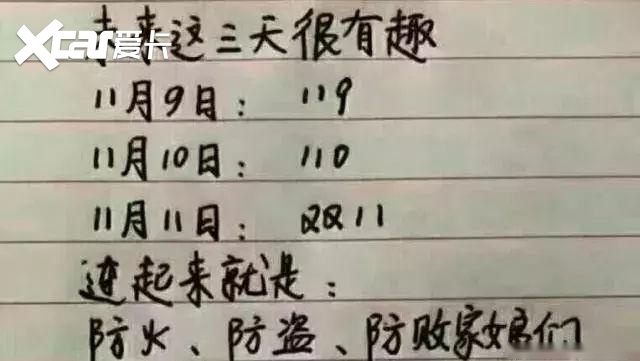 Xcar爱卡
未来这三天很有趣
11月9日： 119
11月10日： 110
11月11日： 双双11
连起来就是：
防火、防盗、防败家娘们